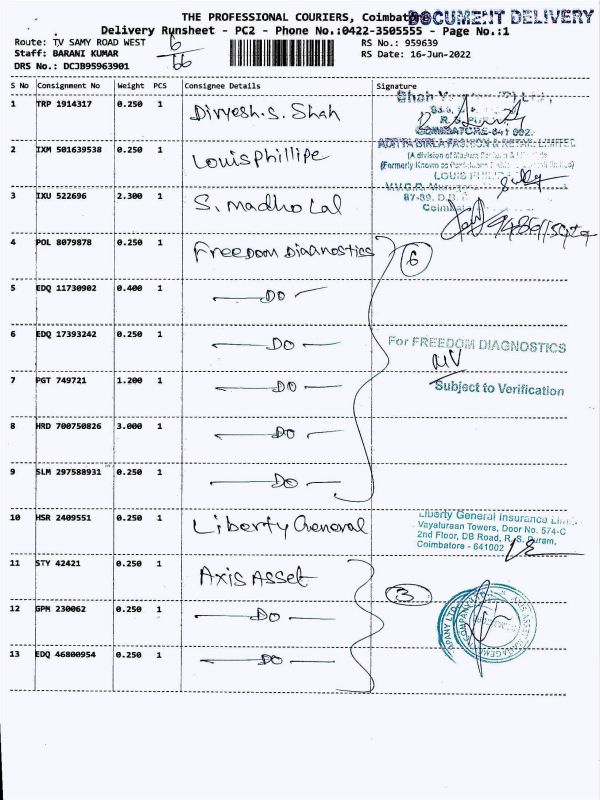 THE PROFESSIONAL COURIERS, Coimbatore
DOCUMENT DELIVERY
Delivery Runsheet - PC2 - Phone No.:0422-3505555 - Page No.:1
Route: TV SAMY ROAD WEST
RS No.: 959639
Staff: BARANI KUMAR
RS Date: 16-Jun-2022
DRS No.: DCJB95963901
6
66
S No Consignment No Weight PCS Consignee Details Signature
1 TRP 1914317 0.250 1 Divyesh.S. Shah
R.S. PURAM
COIMBATORE-641 002.
2 IXM 501639538 0.250 1 Louisphillipe
ADITYA BIRLA FASHION & RETAIL LIMITED
(A division of
(Formerly Known as
LOUIS PHILIPPE
3 IXU 522696 2.300 1 S. Madho Lal
87-89, D.B.
4 POL 8079878 0.250 1 Freedom Diagnostics
6
5 EDQ 11730902 0.400 1 —DO—
6 EDQ 17393242 0.250 1 —DO—
For FREEDOM DIAGNOSTICS
7 PGT 749721 1.200 1 —DO—
Subject to Verification
8 HRD 700750826 3.000 1 —DO—
9 SLM 297588931 0.250 1 —DO—
10 HSR 2409551 0.250 1 Liberty General
Liberty General Insurance
Vayaluraan Towers, Door No. 574-C
2nd Floor, DB Road, R. S. Puram,
Coimbatore - 641002
11 STY 42421 0.250 1 Axis Asset
3
12 GPM 230062 0.250 1 —DO—
13 EDQ 46800954 0.250 1 —DO—